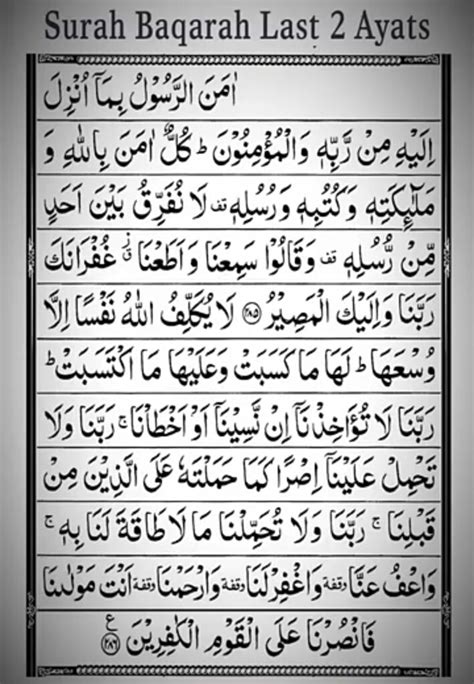 Surah Baqarah Last 2 Ayats
اٰمَنَ الرَّسُوْلُ بِمَاۤ اُنْزِلَ
اِلَيْهِ مِنْ رَّبِّهٖ وَالْمُؤْمِنُوْنَ ؕ كُلٌّ اٰمَنَ بِاللّٰهِ وَ
مَلٰٓئِكَتِهٖ وَكُتُبِهٖ وَرُسُلِهٖ قف لَا نُفَرِّقُ بَيْنَ اَحَدٍ
مِّنْ رُّسُلِهٖ قف وَقَالُوْا سَمِعْنَا وَاَطَعْنَا غُفْرَانَكَ
رَبَّنَا وَاِلَيْكَ الْمَصِيْرُ ﴿۲۸۵﴾ لَا يُكَلِّفُ اللّٰهُ نَفْسًا اِلَّا
وُسْعَهَا ؕ لَهَا مَا كَسَبَتْ وَعَلَيْهَا مَا اكْتَسَبَتْ ؕ
رَبَّنَا لَا تُؤَاخِذْنَاۤ اِنْ نَّسِيْنَاۤ اَوْ اَخْطَاْنَا ۚ رَبَّنَا وَلَا
تَحْمِلْ عَلَيْنَاۤ اِصْرًا كَمَا حَمَلْتَهٗ عَلَى الَّذِيْنَ مِنْ
قَبْلِنَا ۚ رَبَّنَا وَلَا تُحَمِّلْنَا مَا لَا طَاقَةَ لَنَا بِهٖ ۚ
وَاعْفُ عَنَّا وقفة وَاغْفِرْ لَنَا وقفة وَارْحَمْنَا وقفة اَنْتَ مَوْلٰىنَا
فَانْصُرْنَا عَلَى الْقَوْمِ الْكٰفِرِيْنَ ﴿۲۸۶﴾ ع